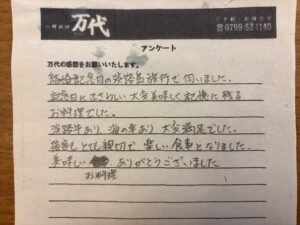 万代
ご予約・お問合せ
☎0799-52-1140
アンケート
万代の感想をお願いいたします。
結婚記念日の淡路島旅行で伺いました。
記念日にふさわしい大変美味しく記憶に残る
お料理でした。
淡路牛あり 海の幸あり 大変満足でした。
接客もとても親切で 楽しい食事となりました。
美味しい ありがとうございました
お料理